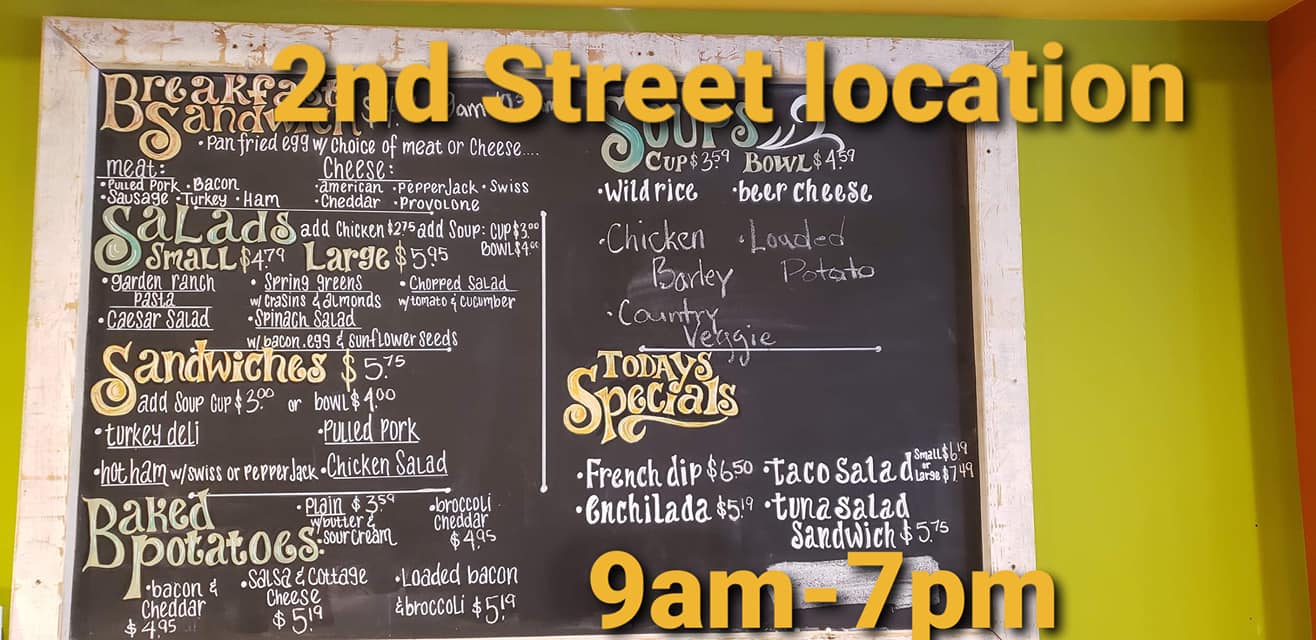 2nd Street location
Breakfast
Sandwich
• Pan fried egg w/ choice of meat or Cheese....
meat:
• Pulled Pork • Bacon
• Sausage • Turkey • Ham
Cheese:
• american • PepperJack • Swiss
• Cheddar • Provolone
Salads add Chicken $2.75 add Soup: Cup $3.00
Bowl $4.00
Small $4.79 Large $5.95
• garden ranch
Pasta
• Spring greens
w/ crasins & almonds
• Chopped Salad
w/ tomato & cucumber
• Caesar Salad
• Spinach Salad
w/ bacon, egg & sunflower seeds
Sandwiches $5.75
add Soup Cup $3.00 or bowl $4.00
• turkey deli
• Pulled Pork
• hot ham w/swiss or Pepper Jack
• Chicken Salad
Baked
potatoes:
• Plain $3.59
w/butter &
sour cream
• broccoli
Cheddar
$4.95
• bacon &
Cheddar
$4.95
• Salsa & Cottage
Cheese
$5.19
• Loaded bacon
& broccoli $5.19
Soups
Cup $3.59 Bowl $4.59
• Wild rice • beer cheese
• Chicken
Barley
• Loaded
Potato
• Country
Veggie
Todays
Specials
• French dip $6.50
• taco Salad Small $6.19
or
Large $7.49
• Enchilada $5.19
• tuna salad
Sandwich $5.75
9am-7pm